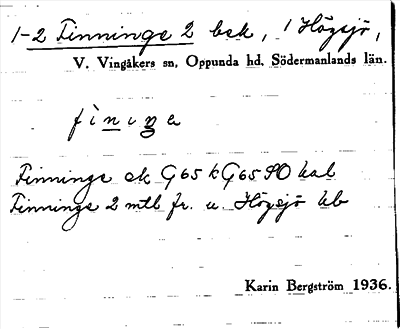 1-2 Finninge 2 bsk, i Högsjö,
V. Vingåkers sn, Oppunda hd, Södermanlands län.
Finninge ek G65k G65SO kal
Finninge 2 mtl fr. u. Högsjö hb
Karin Bergström 1936.